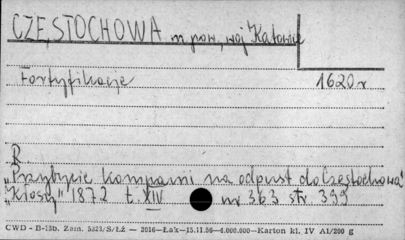 CZĘSTOCHOWA m. pow., woj. Katowice
Fortyfikacje 1620 r
R
„Przybycie kompanii na odpust do Częstochowa”
„Kłosy” 1872 t. XIV nr 363 str. 399
CWD - B-15b. Zam. 5321/S/ŁŻ — 2016—Łak—15.11.56—4.000.000—Karton kl. IV A1/200 g